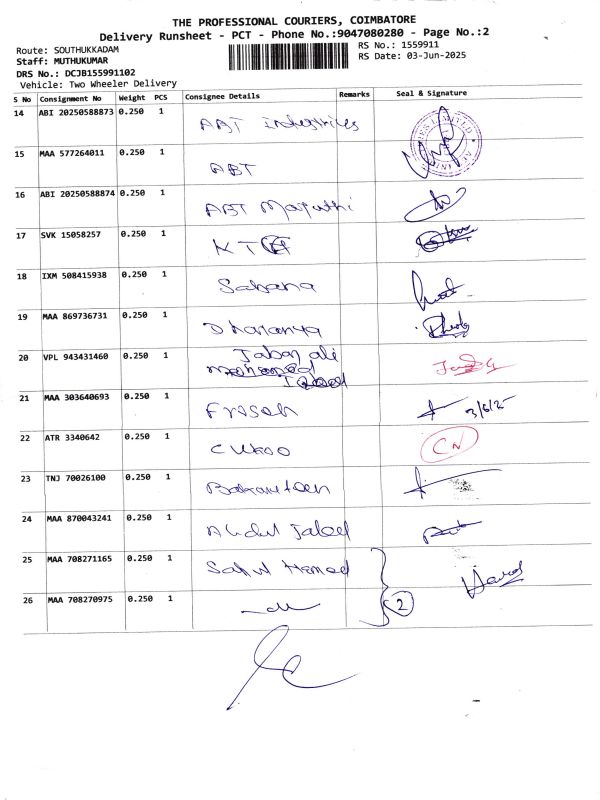 THE PROFESSIONAL COURIERS, COIMBATORE
Delivery Runsheet - PCT - Phone No.:9047080280 - Page No.:2
Route: SOUTHUKKADAM RS No.: 1559911
Staff: MUTHUKUMAR RS Date: 03-Jun-2025
DRS No.: DCJB155991102
Vehicle: Two Wheeler Delivery
S No Consignment No Weight PCS Consignee Details Remarks Seal & Signature
14 ABI 20250588873 0.250 1 ABT Industries
15 MAA 577264011 0.250 1 ABT
16 ABI 20250588874 0.250 1 ABT Maruthi
17 SVK 15058257 0.250 1 KTC
18 IXM 508415938 0.250 1 Sahana
19 MAA 869736731 0.250 1 Dharanya
20 VPL 943431460 0.250 1 Jabar ali
mohamed
21 MAA 303640693 0.250 1 3/6/25
22 ATR 3340642 0.250 1 Cukoo CN
23 TNJ 70026100 0.250 1
24 MAA 870043241 0.250 1 Abdul Jaleel
25 MAA 708271165 0.250 1 Sahul Hameed
26 MAA 708270975 0.250 1 -do- 2